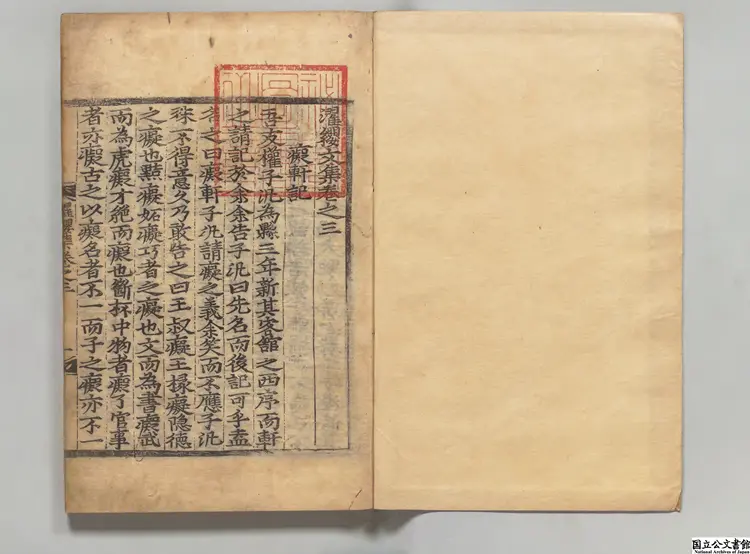 濯纓文集卷之三
癡軒記
吾友權子汎為縣三年新其客舘之西序而軒
之請記於余余告子汎曰先名而後記可乎盍
名之曰癡軒子汎請癡之義余笑而不應子汎
殊不得意久乃敢告之曰王叔癡王掾癡隐德
之癡也黠癡妬癡巧者之癡也文而為書癡武
而為虎癡才絶而癡也斷杯中物者癡了官事
者亦癡古之以癡名者不一而子之癡亦不一
濯纓集卷之三 一
国立公文書館
National Archives of Japan